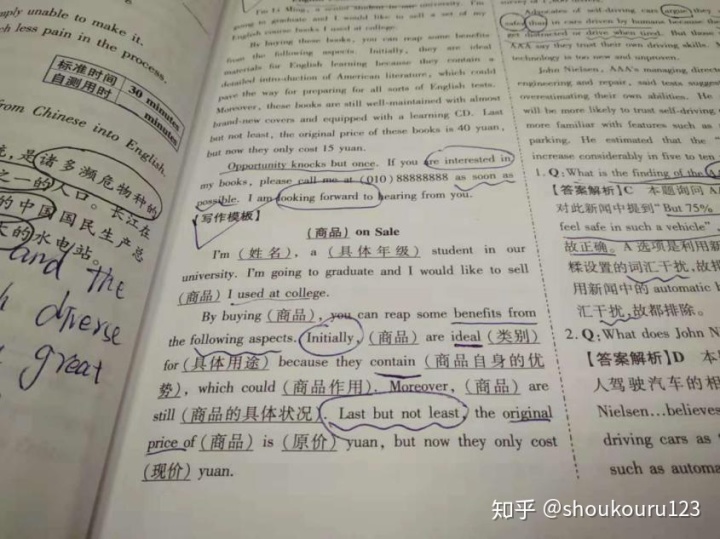 mply unable to make it.
ch less pain in the process.
标准时间 30 minutes
自测用时 minutes
from Chinese into English.
统,是诸多濒危物种的
之一的人口。长江在
的中国国民生产总
大的水电站。
and the
diverse
great
I'm Li Ming, a senior student in our university. I'm
going to graduate and I would like to sell a set of my
English course books I used at college.
By buying these books, you can reap some benefits
from the following aspects. Initially, they are ideal
materials for English learning because they contain a
detailed introduction of American literature, which could
pave the way for preparing for all sorts of English tests.
Moreover, these books are still well-maintained with almost
brand-new covers and equipped with a learning CD. Last
but not least, the original price of these books is 40 yuan,
but now they only cost 15 yuan.
Opportunity knocks but once. If you are interested in
my books, please call me at (010) 88888888 as soon as
possible. I am looking forward to hearing from you.
【写作模板】
(商品) on Sale
I'm (姓名), a (具体年级) student in our
university. I'm going to graduate and I would like to sell
(商品) I used at college.
By buying (商品), you can reap some benefits from
the following aspects. Initially, (商品) are ideal (类别)
for (具体用途) because they contain (商品自身的优
势), which could (商品作用). Moreover, (商品) are
still (商品的具体状况). Last but not least, the original
price of (商品) is (原价) yuan, but now they only cost
(现价) yuan.
Advocates of self-driving cars argue they
safer than in cars driven by humans because the
get distracted or drive when tired. But those
AAA say they trust their own driving skills.
technology is too new and unproven.
John Nielsen, AAA's managing direct
engineering and repair, said tests suggest
overestimating their own abilities. He
will be more likely to trust self-driving
more familiar with features such as
parking. He estimated that the
increase considerably in five to ten
1. Q: What is the finding of the A
【答案解析】C 本题询问A
对此新闻中提到"But 75%
feel safe in such a vehicle"
故正确。A选项是利用新
糅设置的词汇干扰,故排
用新闻中的 automatic b
汇干扰,故都排除。
2. Q: What does John N
【答案解析】D 本
人驾驶汽车的相
Nielsen...believes
driving cars as
such as automa
知乎 @shoukouru123